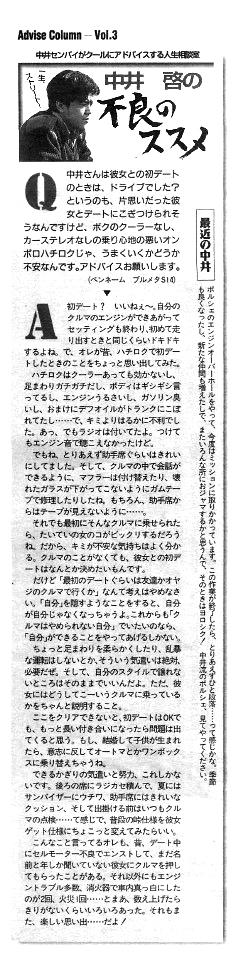 Advise Column — Vol.3
中井センパイがクールにアドバイスする人生相談室
一生、ストリート!
中井 啓の
不良の
ススメ
Q
中井さんは彼女との初デート
のときは、ドライブでした?
というのも、片思いだった彼
女とデートにこぎつけられそ
うなんですけど、ボクのクーラーなし、
カーステレオなしの乗り心地の悪いオン
ボロハチロクじゃ、うまくいくかどうか
不安なんです。アドバイスお願いします。
(ペンネーム プルメタS14)
▼
A
初デート? いいねぇ〜。自分の
クルマのエンジンができあがって
セッティングも終わり、初めて走
り出すときと同じくらいドキドキ
するよね。で、オレが昔、ハチロクで初デ
ートしたときのことをちょっと思い出してみた。
ハチロクはクーラーあっても効かないし、
足まわりガチガチだし、ボディはギシギシ言
ってるし、エンジンうるさいし、ガソリン臭
いし、おまけにデフオイルがトランクにこぼ
れてたし……で、キミよりはるかに不利でし
た。あっ、でもラジオは付いてたよ。つけて
もエンジン音で聴こえなかったけど。
でもね、とりあえず助手席ぐらいはきれい
にしてました。そして、クルマの中で会話が
できるように、マフラーは付け替えたり、壊
れたガラスが下がってこないようにガムテー
プで修理したりしたね。もちろん、助手席か
らはテープが見えないように……。
それでも最初にそんなクルマに乗せられた
ら、たいていの女のコがビックリするだろう
ね。だから、キミが不安な気持ちはよく分か
る。クルマのことがなくても、彼女との初デ
ートはなんとか決めたいもんです。
だけど「最初のデートぐらいは友達かオヤ
ジのクルマで行くか」なんて考えはやめなさ
い。「自分」を隠すようなことをすると、自分
が自分じゃなくなっちゃうよ。これからも「ク
ルマはやめられない自分」でいたいのなら、
「自分」ができることをやってあげるしかない。
ちょっと足まわりを柔らかくしたり、乱暴
な運転はしないとか、そういう気遣いは絶対、
必要だぜ。そして、自分のスタイルで譲れな
いところはそのままでいいんだよ。ただ、彼
女にはどうしてこーいうクルマに乗っている
かをちゃんと説明すること。
ここをクリアできないと、初デートはOKで
も、もっと長い付き合いになったら問題は出
てくると思う。もし、結婚して子供が生まれ
たら、意志に反してオートマとかワンボック
スに乗り替えちゃうね。
できるかぎりの気遣いと努力、これしかな
いです。後ろの席にラジカセ積んで、夏には
サンバイザーにウチワ、助手席にはきれいな
クッション、そして出掛ける前はいつもクル
マの点検……て感じで、普段の峠仕様を彼女
ゲット仕様にちょこっと変えてみたらいい。
こんなこと言ってるオレも、昔、デート中
にセルモーター不良でエンストして、まだ名
前と年しか聞いていない彼女にクルマを押し
てもらったことがある。それ以外にもエンジ
ントラブル多数、消火器で車内真っ白にした
のが2回、火災1回……とまぁ、数え上げたら
きりがないくらいいろいろあった。それもま
た、楽しい思い出……だよ!
最近の中井
ポルシェのエンジンオーバーホールをやって、今度はミッションに取りかかっています。この作業が終了したら、とりあえずひと段落……って感じかな。季節
も良くなったし、新たな仲間も増えたしで、またいろんな所におジャマするかと思うんで、そのときはヨロシク! 中井流のポルシェ、見てやってください。